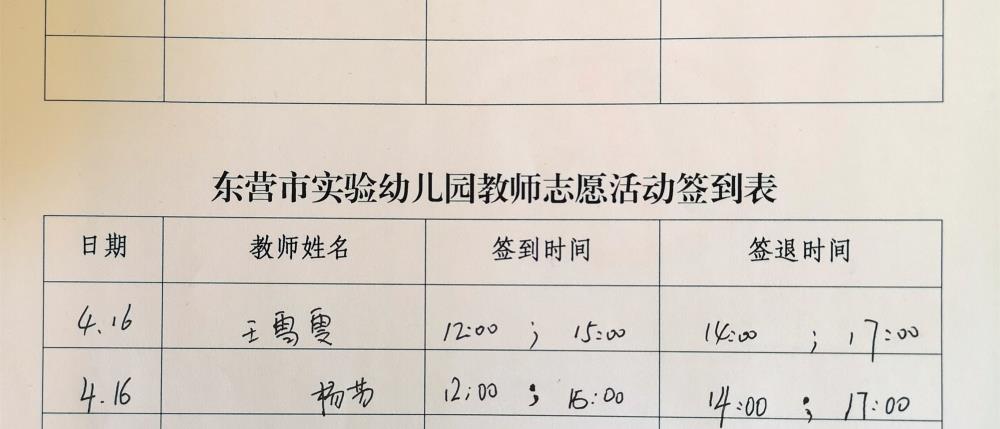 东营市实验幼儿园教师志愿活动签到表
日期 教师姓名 签到时间 签退时间
4.16 王雪雯 12:00 ; 15:00 14:00 ; 17:00
4.16 杨 12:00 ; 15:00 14:00 ; 17:00